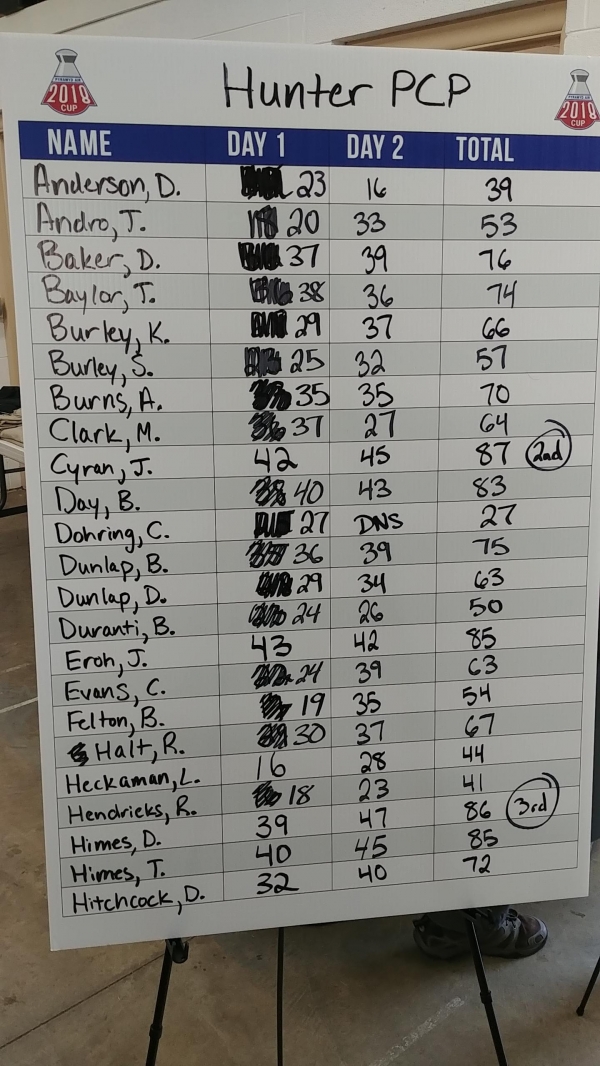 PYRAMYD AIR
2018
CUP
Hunter PCP
PYRAMYD AIR
2018
CUP
NAME DAY 1 DAY 2 TOTAL
Anderson, D. 23 16 39
Andro, T. 20 33 53
Baker, D. 37 39 76
Baylor, T. 38 36 74
Burley, K. 29 37 66
Burley, S. 25 32 57
Burns, A. 35 35 70
Clark, M. 37 27 64
Cyran, J. 42 45 87 2nd
Day, B. 40 43 83
Dohring, C. 27 DNS 27
Dunlap, B. 36 39 75
Dunlap, D. 29 34 63
Duranti, B. 24 26 50
Eroh, J. 43 42 85
Evans, C. 24 39 63
Felton, B. 19 35 54
Halt, R. 30 37 67
Heckaman, L. 16 28 44
Hendricks, R. 18 23 41
Himes, D. 39 47 86 3rd
Himes, T. 40 45 85
Hitchcock, D. 32 40 72